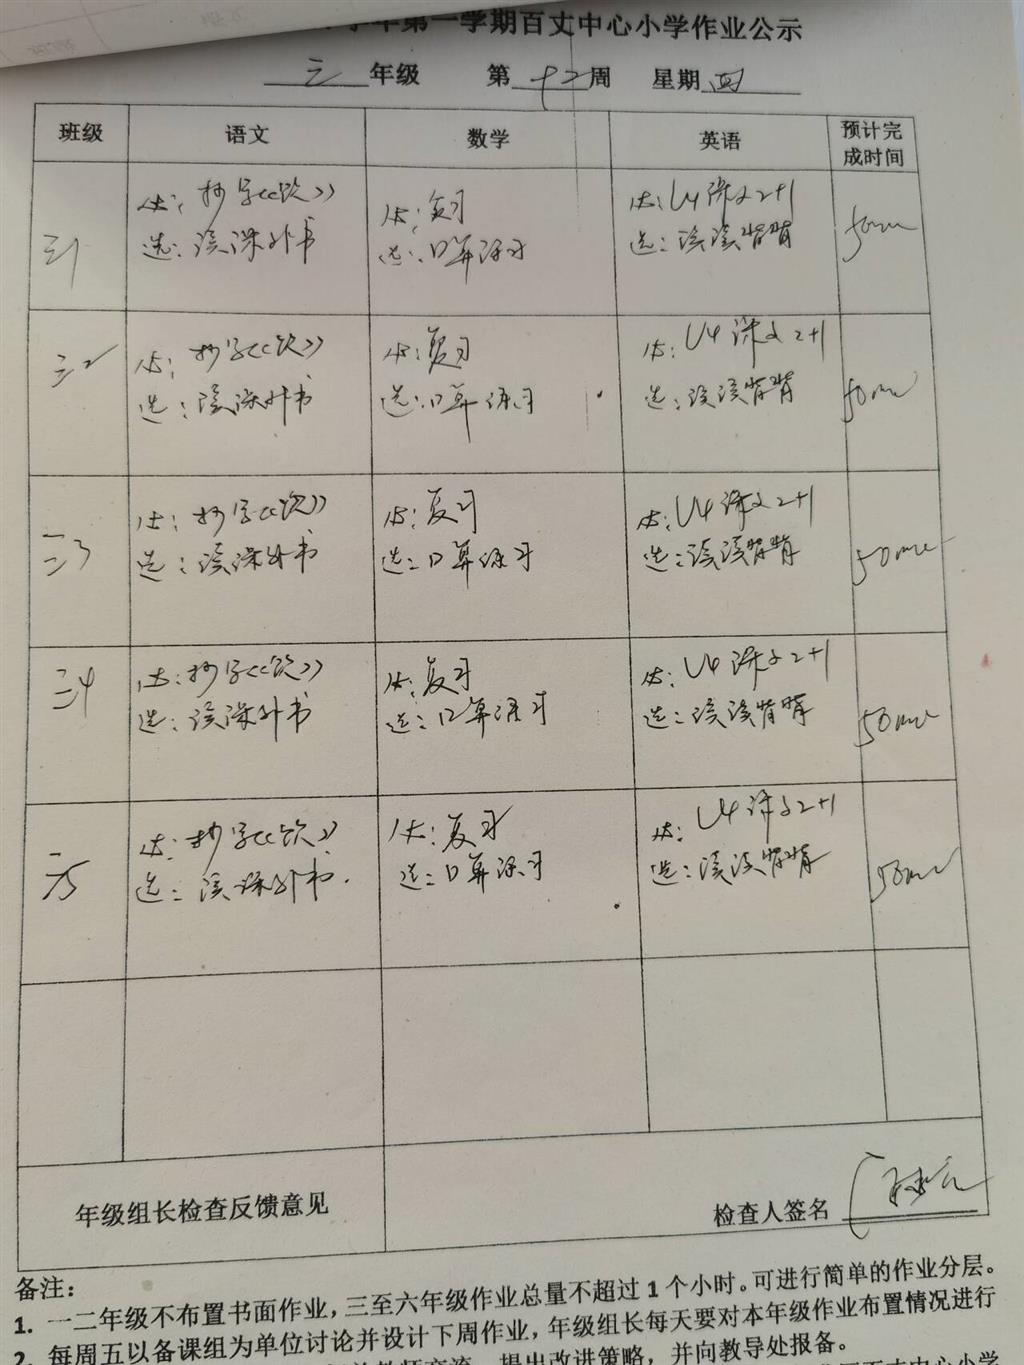 学年第一学期百丈中心小学作业公示
三 年级 第 十二 周 星期 四
班级 语文 数学 英语 预计完成时间
三1
必: 抄字《饮》
选: 读课外书
必: 复习
选: 口算练习
必: U4 课文 2+1
选: 读读背背
50min
三2
必: 抄字《饮》
选: 读课外书
必: 复习
选: 口算练习
必: U4 课文 2+1
选: 读读背背
50min
三3
必: 抄字《饮》
选: 读课外书
必: 复习
选: 口算练习
必: U4 课文 2+1
选: 读读背背
50min
三4
必: 抄字《饮》
选: 读课外书
必: 复习
选: 口算练习
必: U4 课文 2+1
选: 读读背背
50min
三5
必: 抄字《饮》
选: 读课外书.
必: 复习
选: 口算练习
必: U4 课文 2+1
选: 读读背背
50min
年级组长检查反馈意见 检查人签名
备注:
1. 一二年级不布置书面作业，三至六年级作业总量不超过 1 个小时。可进行简单的作业分层。
2. 每周五以备课组为单位讨论并设计下周作业，年级组长每天要对本年级作业布置情况进行
提出改进策略，并向教导处报备。